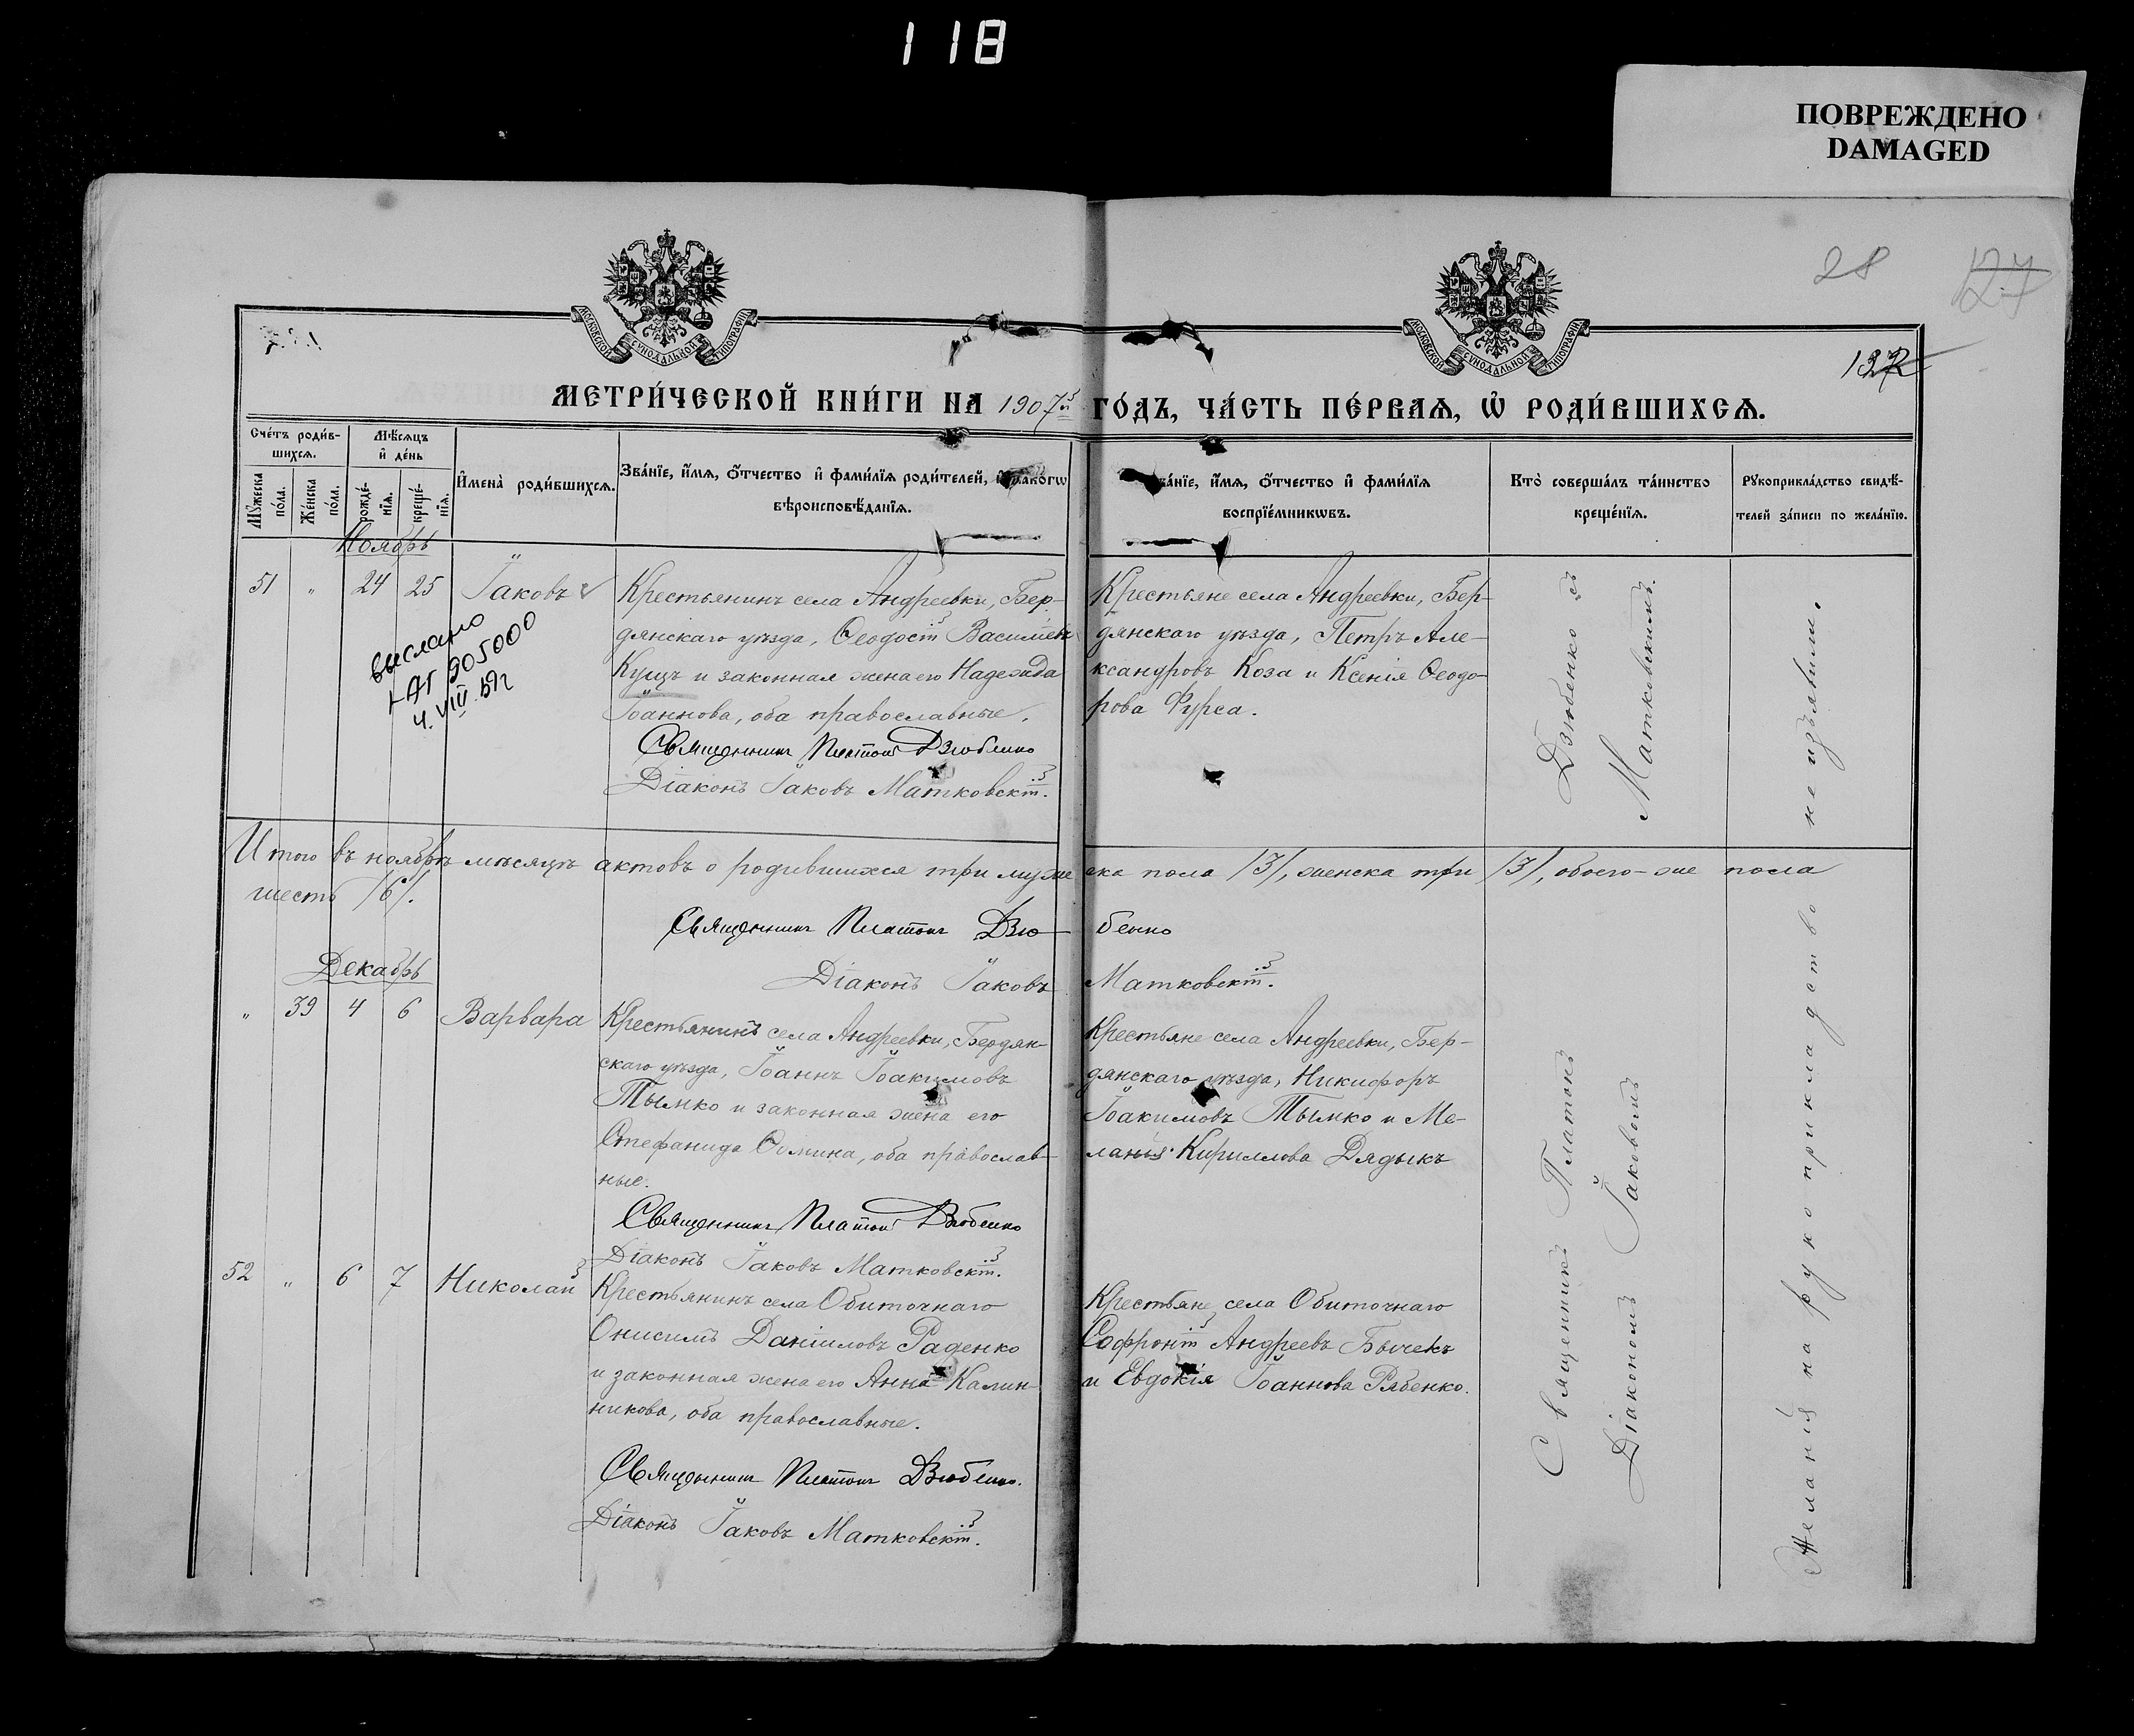 118
ПОВРЕЖДЕНО
DAMAGED
28
127
МОСКОВСКОЙ СУНОДАЛЬНОЙ ТИПОГРАФІИ
МОСКОВСКОЙ СУНОДАЛЬНОЙ ТИПОГРАФІИ
МЕТРИ́ЧЕСКОЙ КНИ́ГИ НА 1907й ГО́ДЪ, ЧА́СТЬ ПЕ́РВАѦ, Ѡ҆ РОДИ́ВШИХСѦ.
Сче́тъ роди́в-
шихсѧ.
Мѣ́сѧцъ
и҆ де́нь
Мꙋ́жеска по́ла.
Же́нска по́ла.
рожде́-
нїѧ.
креще́-
нїѧ.
И҆мена̀ роди́вшихсѧ.
Зва́нїе, и҆́мѧ, ѻ҆́тчество и҆ фами́лїѧ роди́телей, и҆ какогѡ
вѣроисповѣ́данїѧ.
Зва́нїе, и҆́мѧ, ѻ҆́тчество и҆ фами́лїѧ
воспрїе́мникѡвъ.
Кто̀ соверша́лъ та́инство
креще́нїѧ.
Рꙋкоприкла́дство свидѣ́-
телей за́писи по жела́нїю.
Ноябрь
51 " 24 25 Іаковъ
Крестьянинъ села Андреевки, Бер-
дянскаго уѣзда, Ѳеодосій Васильевъ
Кущъ и законная жена его Надежда
Іоаннова, оба православные.
Священникъ Платонъ Дзюбенко
Діаконъ Іаковъ Матковскій.
Крестьяне села Андреевки, Бер-
дянскаго уѣзда, Петръ Але-
ксандровъ Коза и Ксенія Ѳеодо-
рова Фурса.
выслано
4.VIII.59г
Итого въ ноябрѣ мѣсяцѣ актовъ о родившихся три мужеска пола /3/, женска три /3/, обоего-же пола
шесть /6/.
Священникъ Платонъ Дзюбенко
Діаконъ Іаковъ Матковскій.
Декабрь
" 39 4 6 Варвара
Крестьянинъ села Андреевки, Бердян-
скаго уѣзда, Іоаннъ Іоакимовъ
Тымко и законная жена его
Стефанида Ѳомина, оба православ-
ные.
Священникъ Платонъ Дзюбенко
Діаконъ Іаковъ Матковскій.
Крестьяне села Андреевки, Бер-
дянскаго уѣзда, Никифоръ
Іоакимовъ Тымко и Ме-
ланія Кириллова Дядыкъ
52 " 6 7 Николай
Крестьянинъ села Обиточнаго
Онисимъ Даніиловъ Раденко
и законная жена его Анна Калин-
никова, оба православные.
Священникъ Платонъ Дзюбенко.
Діаконъ Іаковъ Матковскій.
Крестьяне села Обиточнаго
Софроній Андреевъ Бычекъ
и Евдокія Іоаннова Рябенко.
Священникъ Платонъ Дзюбенко съ
Діакономъ Іаковомъ Матковскимъ.
Желанія на рукоприкладство не изъявили.